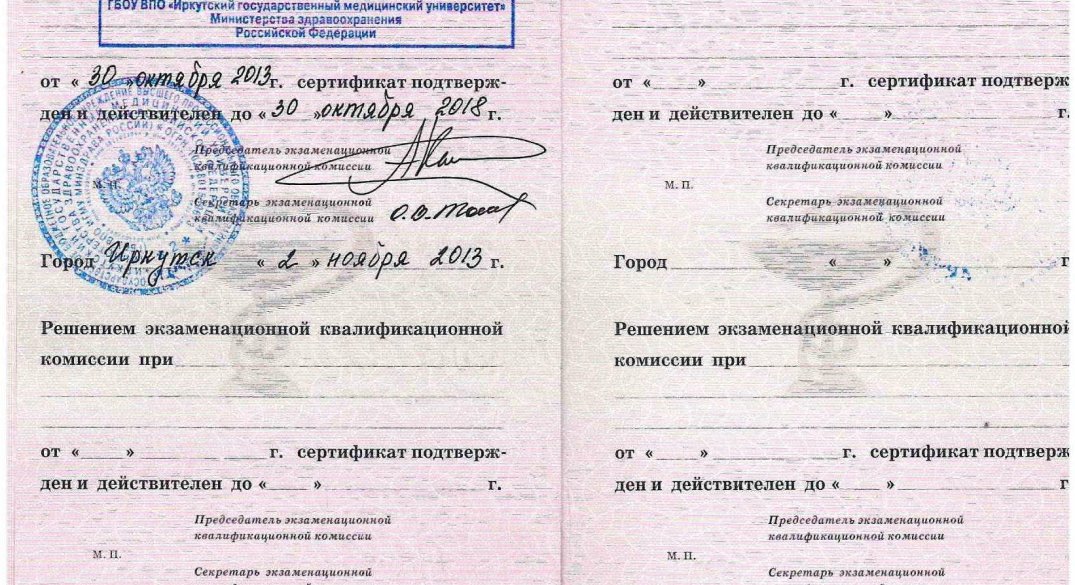 ГБОУ ВПО «Иркутский государственный медицинский университет»
Министерства здравоохранения
Российской Федерации
от « 30 » октября 2013 г. сертификат подтверж-
ден и действителен до « 30 » октября 2018 г.
Председатель экзаменационной
квалификационной комиссии
М. П.
Секретарь экзаменационной
квалификационной комиссии
Город Иркутск « 2 » ноября 2013 г.
Решением экзаменационной квалификационной
комиссии при
от « » г. сертификат подтверж-
ден и действителен до « » г.
Председатель экзаменационной
квалификационной комиссии
М. П.
Секретарь экзаменационной
от « » г. сертификат подтверж
ден и действителен до « » г.
Председатель экзаменационной
квалификационной комиссии
М. П.
Секретарь экзаменационной
квалификационной комиссии
Город « » г
Решением экзаменационной квалификационной
комиссии при
от « » г. сертификат подтверж
ден и действителен до « » г
Председатель экзаменационной
квалификационной комиссии
М. П.
Секретарь экзаменационной